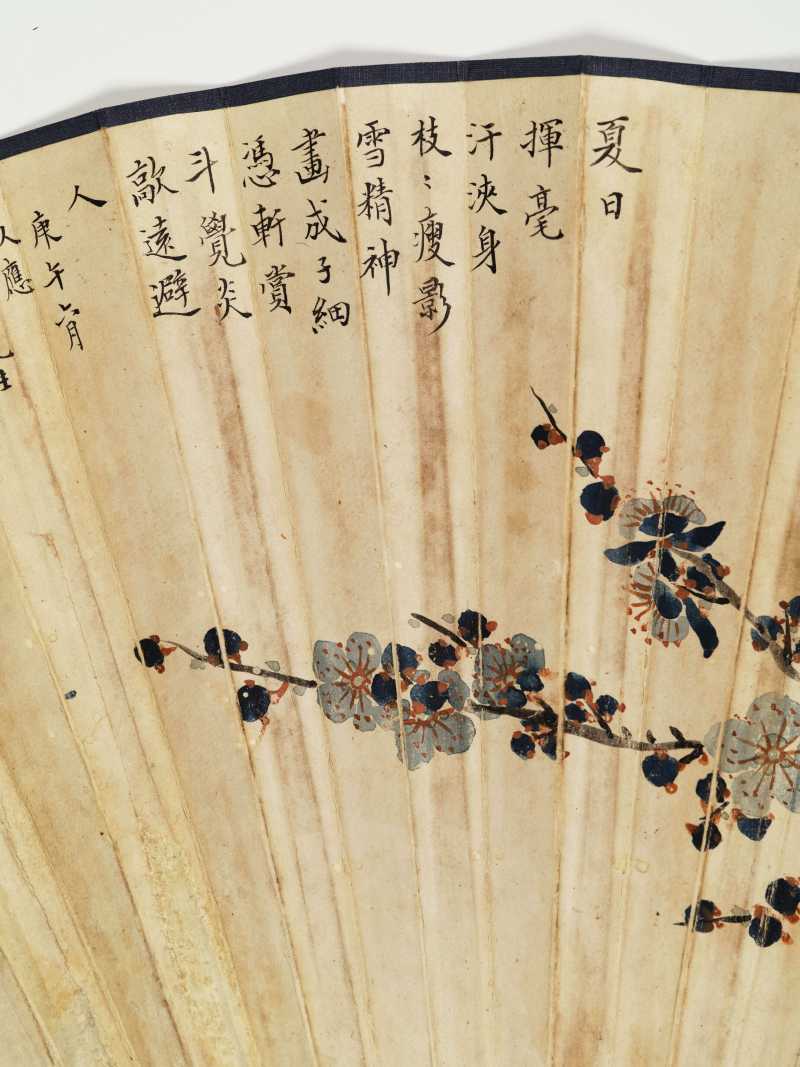 夏日
揮毫
汗浹身
枝〻瘦影
雪精神
畫成子細
憑軒賞
斗覺炎
歊遠避
人
庚午六月
應